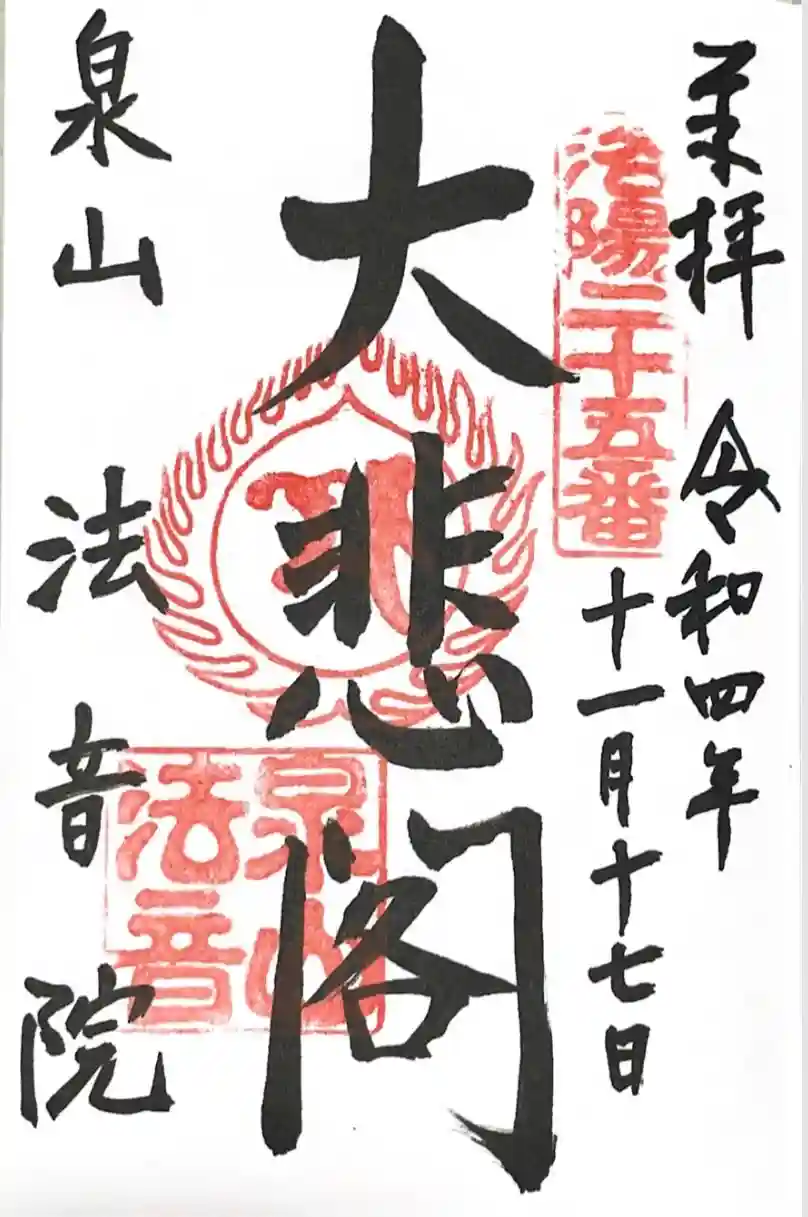 奉拝 令和四年
十一月十七日
洛陽二十五番
大悲閣
泉山
法音
泉山 法音院